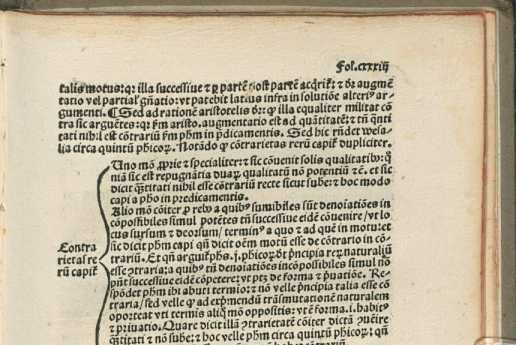 Fol. cxxxiij
talis motus: qꝛ illa successiue ⁊ ꝑ partē post partē acq̄rit᷑: ⁊ dꝛ augmē
tatio vel partial' gn̄atio: vt patebit latius infra in solutiōe alteriꝰ ar-
gumenti. ¶ Sed ad rationē aristotelis dꝛ: ꝙ illa equaliter militat cō
tra sic arguētes: qꝛ ẜm aristo. augmentatio est ad quātitatē: ⁊ tn̄ qn̄ti
tati nihil est cōtrariū ẜm phm in p̄dicamentis. Sed hic rn̄det vvesa-
lia circa quintū phicoꝝ. Notādo ꝙ cōtrarietas rerū capit᷑ dupliciter.
Uno mō ꝓprie ⁊ specialiter: ⁊ sic cōuenit solis qualitatibꝰ: qm̄
niā sic est repugnātia duaꝝ qualitatū nō potentiū ⁊c̄. et sic
dicit q̄ntitati nihil esse cōtrariū recte sicut sube: ⁊ hoc modo
capi a pho in predicamentis.
Alio mō cōiter ꝓ reb̉ a quibꝰ sumibiles sūt denoiatiōes in
cōpossibiles simul potētes tn̄ successiue eidē cōuenire / vt lo
cus sursum ⁊ deorsum / terminꝰ a quo ⁊ ad quē in motu: et
sic dicit phm capi qn̄ dicit oēm motū esse de cōtrario in cō-
trariū. Et qn̄ arguit᷑ phs .j. phicoꝝ ꝙ p̄ncipia reꝝ naturaliū
Contra
rietas re
rū capit᷑
esse ꝯtraria: a quibꝰ tn̄ denoiatiōes incōpossibiles simul nō
pn̄t successiue eidē cōpetere: vt ptꝫ de forma ⁊ p̄uatiōe. Re-
spōdet phm ibi abuti termio: ⁊ nō velle p̄ncipia talia esse cō
traria / sed velle ꝙ ad exp̄mendū trāsmutationē naturalem
oporteat vti termis aliq̄ mō oppositis: vt ē forma. i. habit̉
⁊ priuatio. Quare dicit illā ꝯtrarietatē cōiter dictā ꝯueire
q̄titati ⁊ nō sube: ⁊ hoc velle phm circa quintū phicoꝝ: qn̄